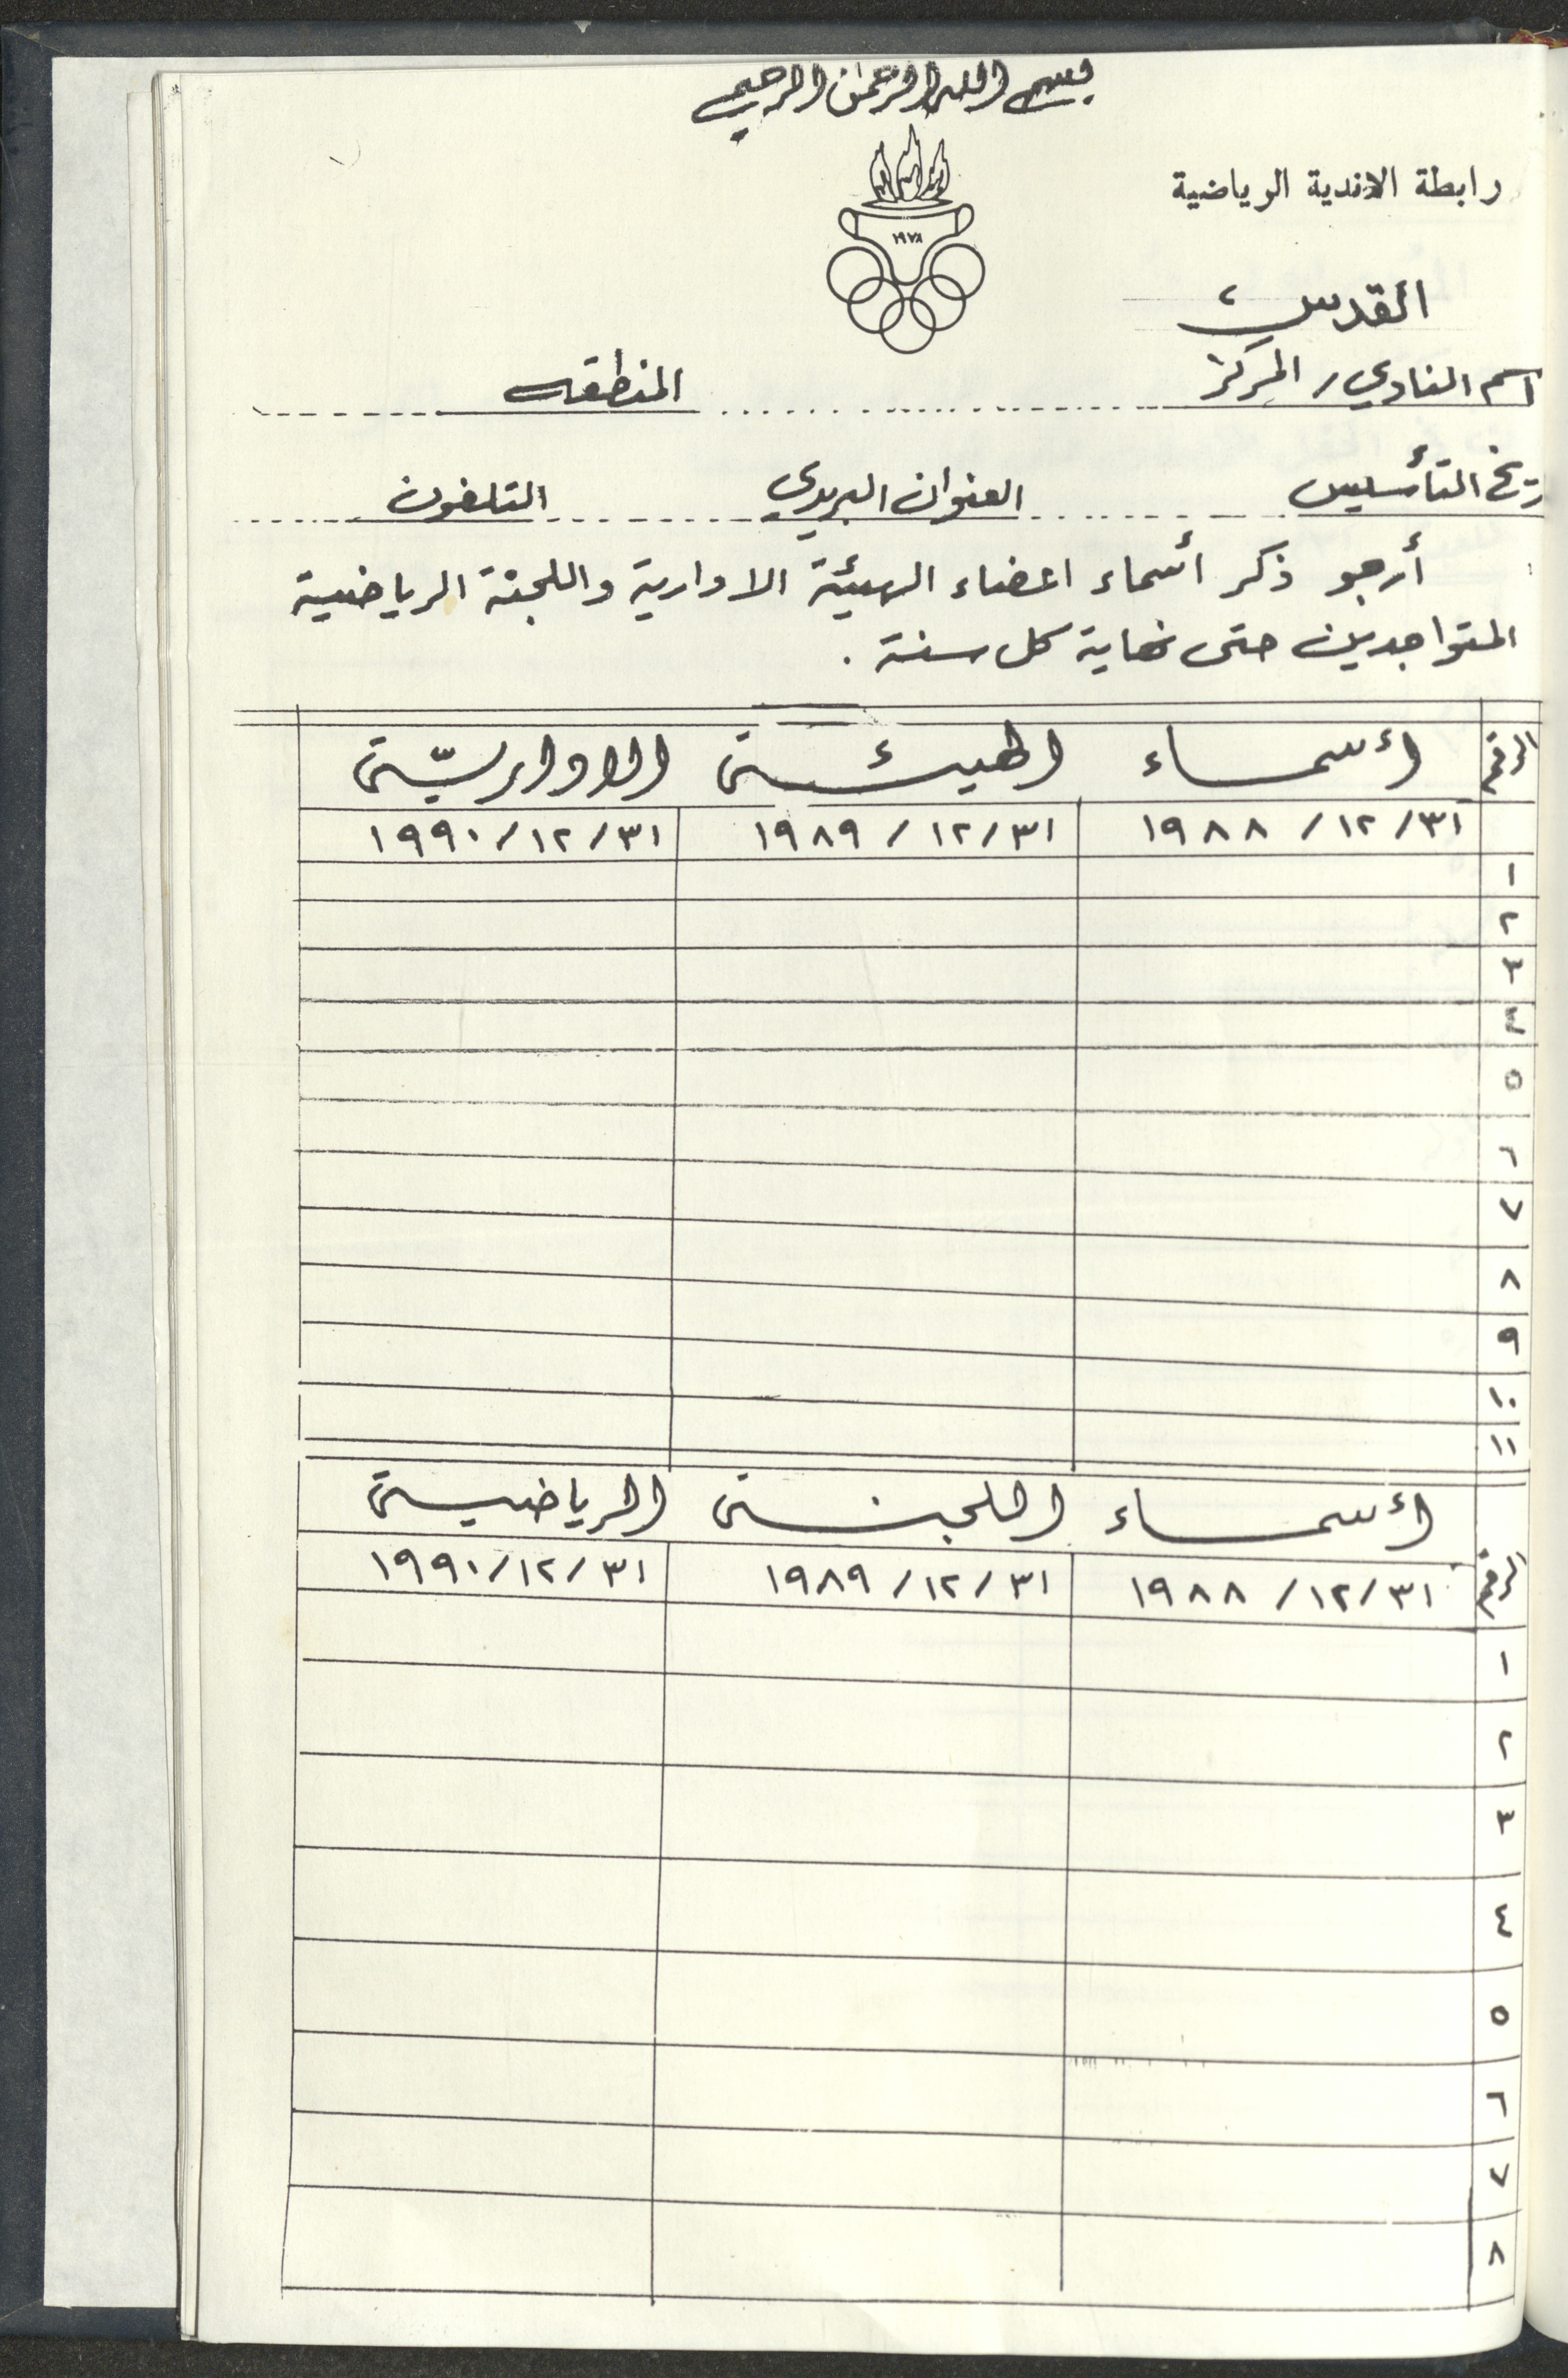 بسم الله الرحمن الرحيم
رابطة الاندية الرياضية
١٩٧٨
القدس
اسم النادي / المركز ............ المنطقه ............
تاريخ التأسيس ............ العنوان البريدي ............ التلفون ............
أرجو ذكر أسماء اعضاء الهيئة الادارية واللجنة الرياضية
المتواجدين حتى نهاية كل سنة .
الرقم أسمـــاء الهيئــة الاداريّة
٣١/١٢/ ١٩٨٨ ٣١/١٢/ ١٩٨٩ ٣١/١٢/١٩٩٠
١
٢
٣
٤
٥
٦
٧
٨
٩
١٠
١١
الرقم أسمـــاء اللجنــة الرياضيــة
٣١/١٢/ ١٩٨٨ ٣١/١٢/ ١٩٨٩ ٣١/١٢/١٩٩٠
١
٢
٣
٤
٥
٦
٧
٨